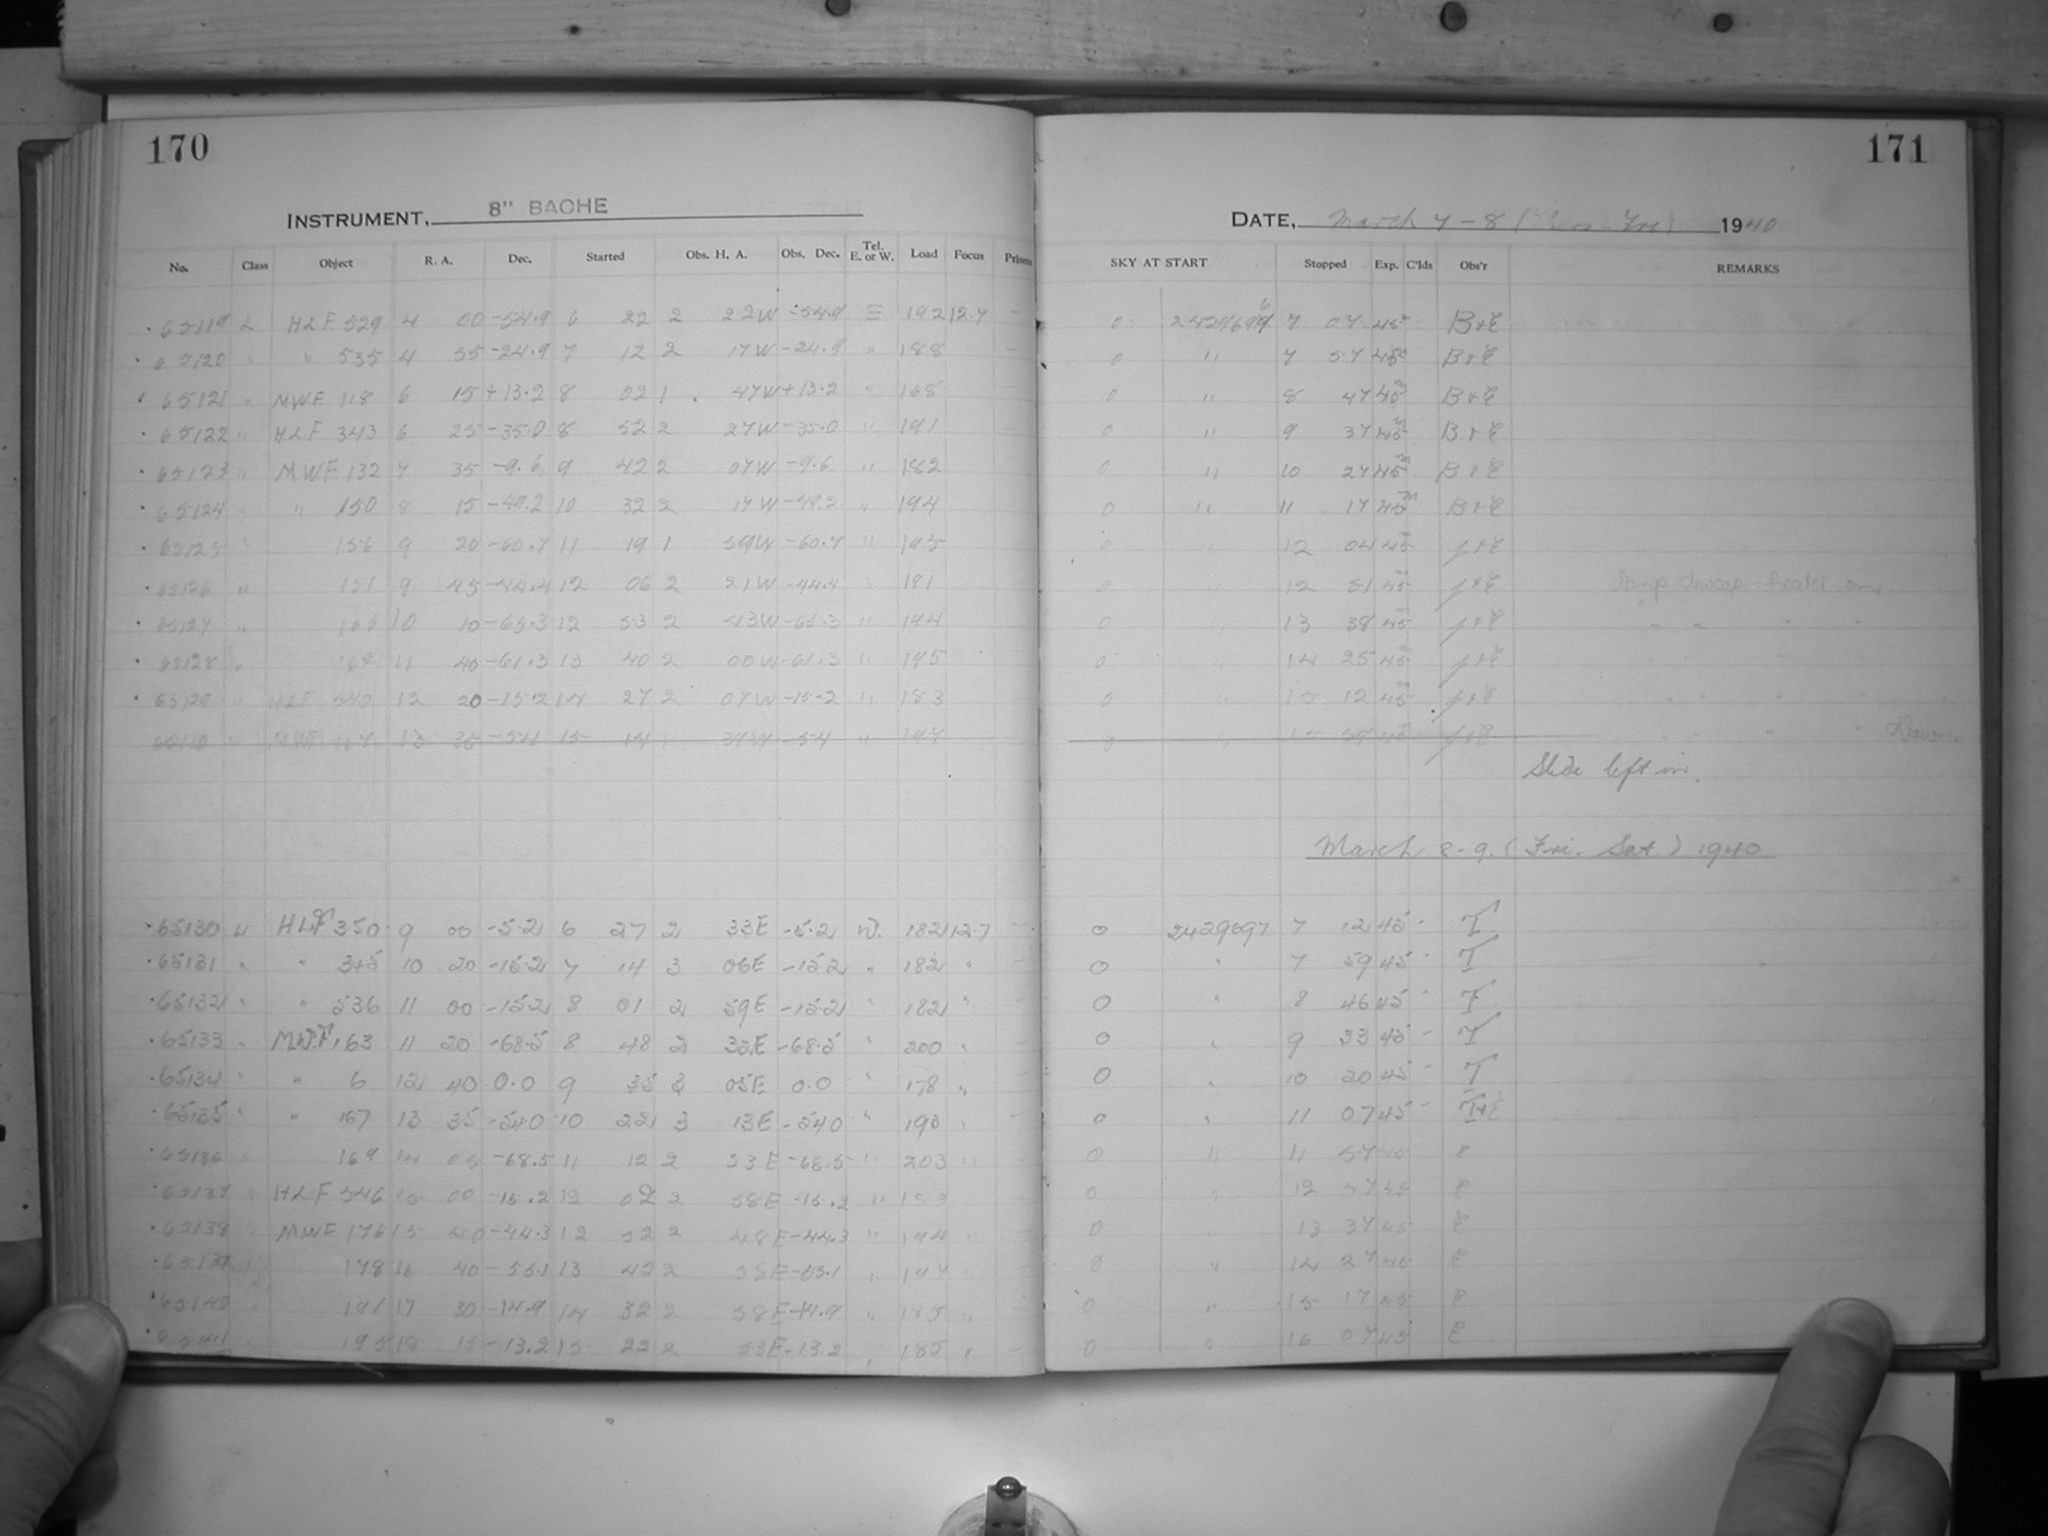 170
INSTRUMENT, 8" BACHE
No. Class Object R. A. Dec. Started Obs. H. A. Obs. Dec. Tel. E. or W. Load Focus Prism
65119 L HLF 529 4 00 -54.9 6 22 2 22W -54.9 E 192 12.7
65120 " " 535 4 55 -24.9 7 12 2 17W -24.9 " 188
65121 " MWF 118 6 15 +13.2 8 02 1 47W +13.2 " 168
65122 " HLF 343 6 25 -35.0 8 52 2 27W -35.0 " 191
65123 " MWF 132 7 35 -9.6 9 42 2 07W -9.6 " 182
65124 " " 150 8 15 10 32 2 17W " 194
65125 " 156 9 20 -60.7 11 19 1 59W -60.7 " 195
65126 " 9 45 -44.4 12 06 2 21W -44.4 " 191
65127 " 10 10 -65.3 12 53 2 43W -65.3 " 194
65128 " 11 40 -61.3 13 40 2 00W -61.3 " 195
65129 " HLF 540 12 20 -15.2 14 27 2 07W -15.2 " 183
MWF 167 13 35 -54 15 14 1 37W -54 " 197
65130 L HLF 350 9 00 -5.2 6 27 2 33E -5.2 W. 182 12.7
65131 " " 345 10 20 -15.2 7 14 3 06E -15.2 " 182 "
65132 " " 536 11 00 -15.2 8 01 2 59E -15.2 " 182 "
65133 " MWF 163 11 20 -68.5 8 48 2 32E -68.5 " 200 "
65134 " " 6 12 40 0.0 9 35 3 05E 0.0 " 178 "
65135 " " 167 13 35 -54.0 10 22 3 13E -54.0 " 190 "
65136 " 169 14 05 -68.5 11 12 2 53E -68.5 " 203 "
65137 " HLF 546 15 00 -15.2 12 02 2 58E -15.2 " 183
65138 " MWF 176 15 40 -44.3 12 52 2 48E -44.3 " 194 "
65139 178 16 40 -55.1 13 42 2 58E -55.1 " 197
65140 191 17 30 -14.9 14 32 2 58E -14.9 " 185 "
65141 195 18 15 -13.2 15 22 2 53E -13.2 " 185 "
171
DATE, March 7-8 (Thurs-Fri) 1940
SKY AT START Stopped Exp. C'lds Obs'r REMARKS
0 7 07 45m B+E
0 " 7 57 45m B+E
0 " 8 47 45m B+E
0 " 9 37 45m B+E
0 " 10 27 45m B+E
0 " 11 17 45m B+E
0 " 12 04 45m J+E
0 " 12 51 45m J+E Damp dewcap-heater on.
0 " 13 38 45m J+E " " " "
0 " 14 25 45m J+E " " " "
0 " 15 12 45m J+E " " " "
0 " 15 59 45m J+E " " " " Dawn
Slide left in.
March 8-9. (Fri. Sat.) 1940
0 2429697 7 12 45 - T
0 " 7 59 45 - T
0 " 8 46 45 - T
0 " 9 33 45 - T
0 " 10 20 45 - T
0 " 11 07 45 - T+E
0 " 11 57 45 E
0 " 12 47 45 E
0 " 13 37 45 E
0 " 14 27 45 E
0 " 15 17 45 E
0 " 16 07 45 E